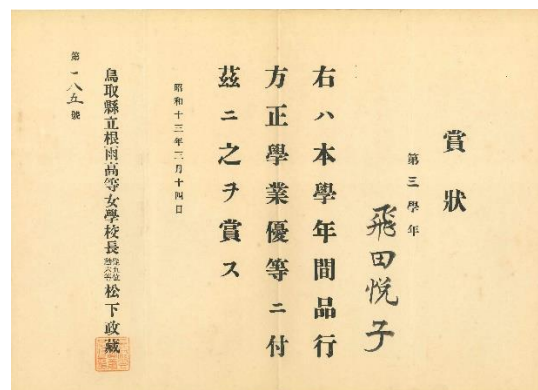 賞狀
第三學年
飛田悦子
右ハ本學年間品行
方正學業優等ニ付
茲ニ之ヲ賞ス
昭和十三年三月十四日
鳥取縣立根雨高等女學校長從五位勲六等松下政藏
第一八五號